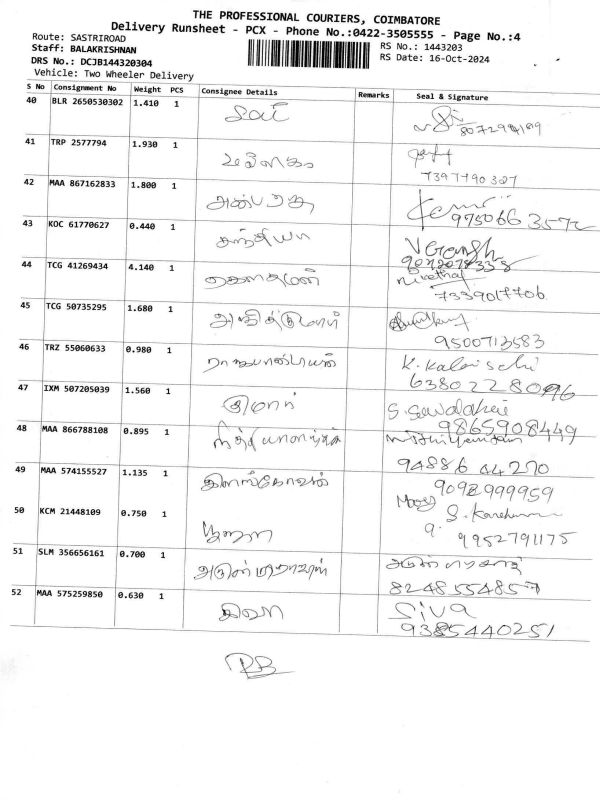 THE PROFESSIONAL COURIERS, COIMBATORE
Delivery Runsheet - PCX - Phone No.:0422-3505555 - Page No.:4
Route: SASTRIROAD
RS No.: 1443203
Staff: BALAKRISHNAN
RS Date: 16-Oct-2024
DRS No.: DCJB144320304
Vehicle: Two Wheeler Delivery
S No Consignment No Weight PCS Consignee Details Remarks Seal & Signature
40 BLR 2650530302 1.410 1
41 TRP 2577794 1.930 1
7397790327
42 MAA 867162833 1.800 1 அன்பரசு
975066 3572
43 KOC 61770627 0.440 1 சுந்தியா
44 TCG 41269434 4.140 1 கௌதமன்
7339017706
45 TCG 50735295 1.680 1 அஜித்குமார்
9500713583
46 TRZ 55060633 0.980 1 ராஜபாண்டியன் K. Kalaiselvi
6380228096
47 IXM 507205039 1.560 1 குமார்
9865908449
48 MAA 866788108 0.895 1 நித்தியானந்தன்
94886 44270
49 MAA 574155527 1.135 1 இளங்கோவன் 9092999959
50 KCM 21448109 0.750 1
9952791175
51 SLM 356656161 0.700 1
8248554857
52 MAA 575259850 0.630 1 சிவா Siva
9385440251